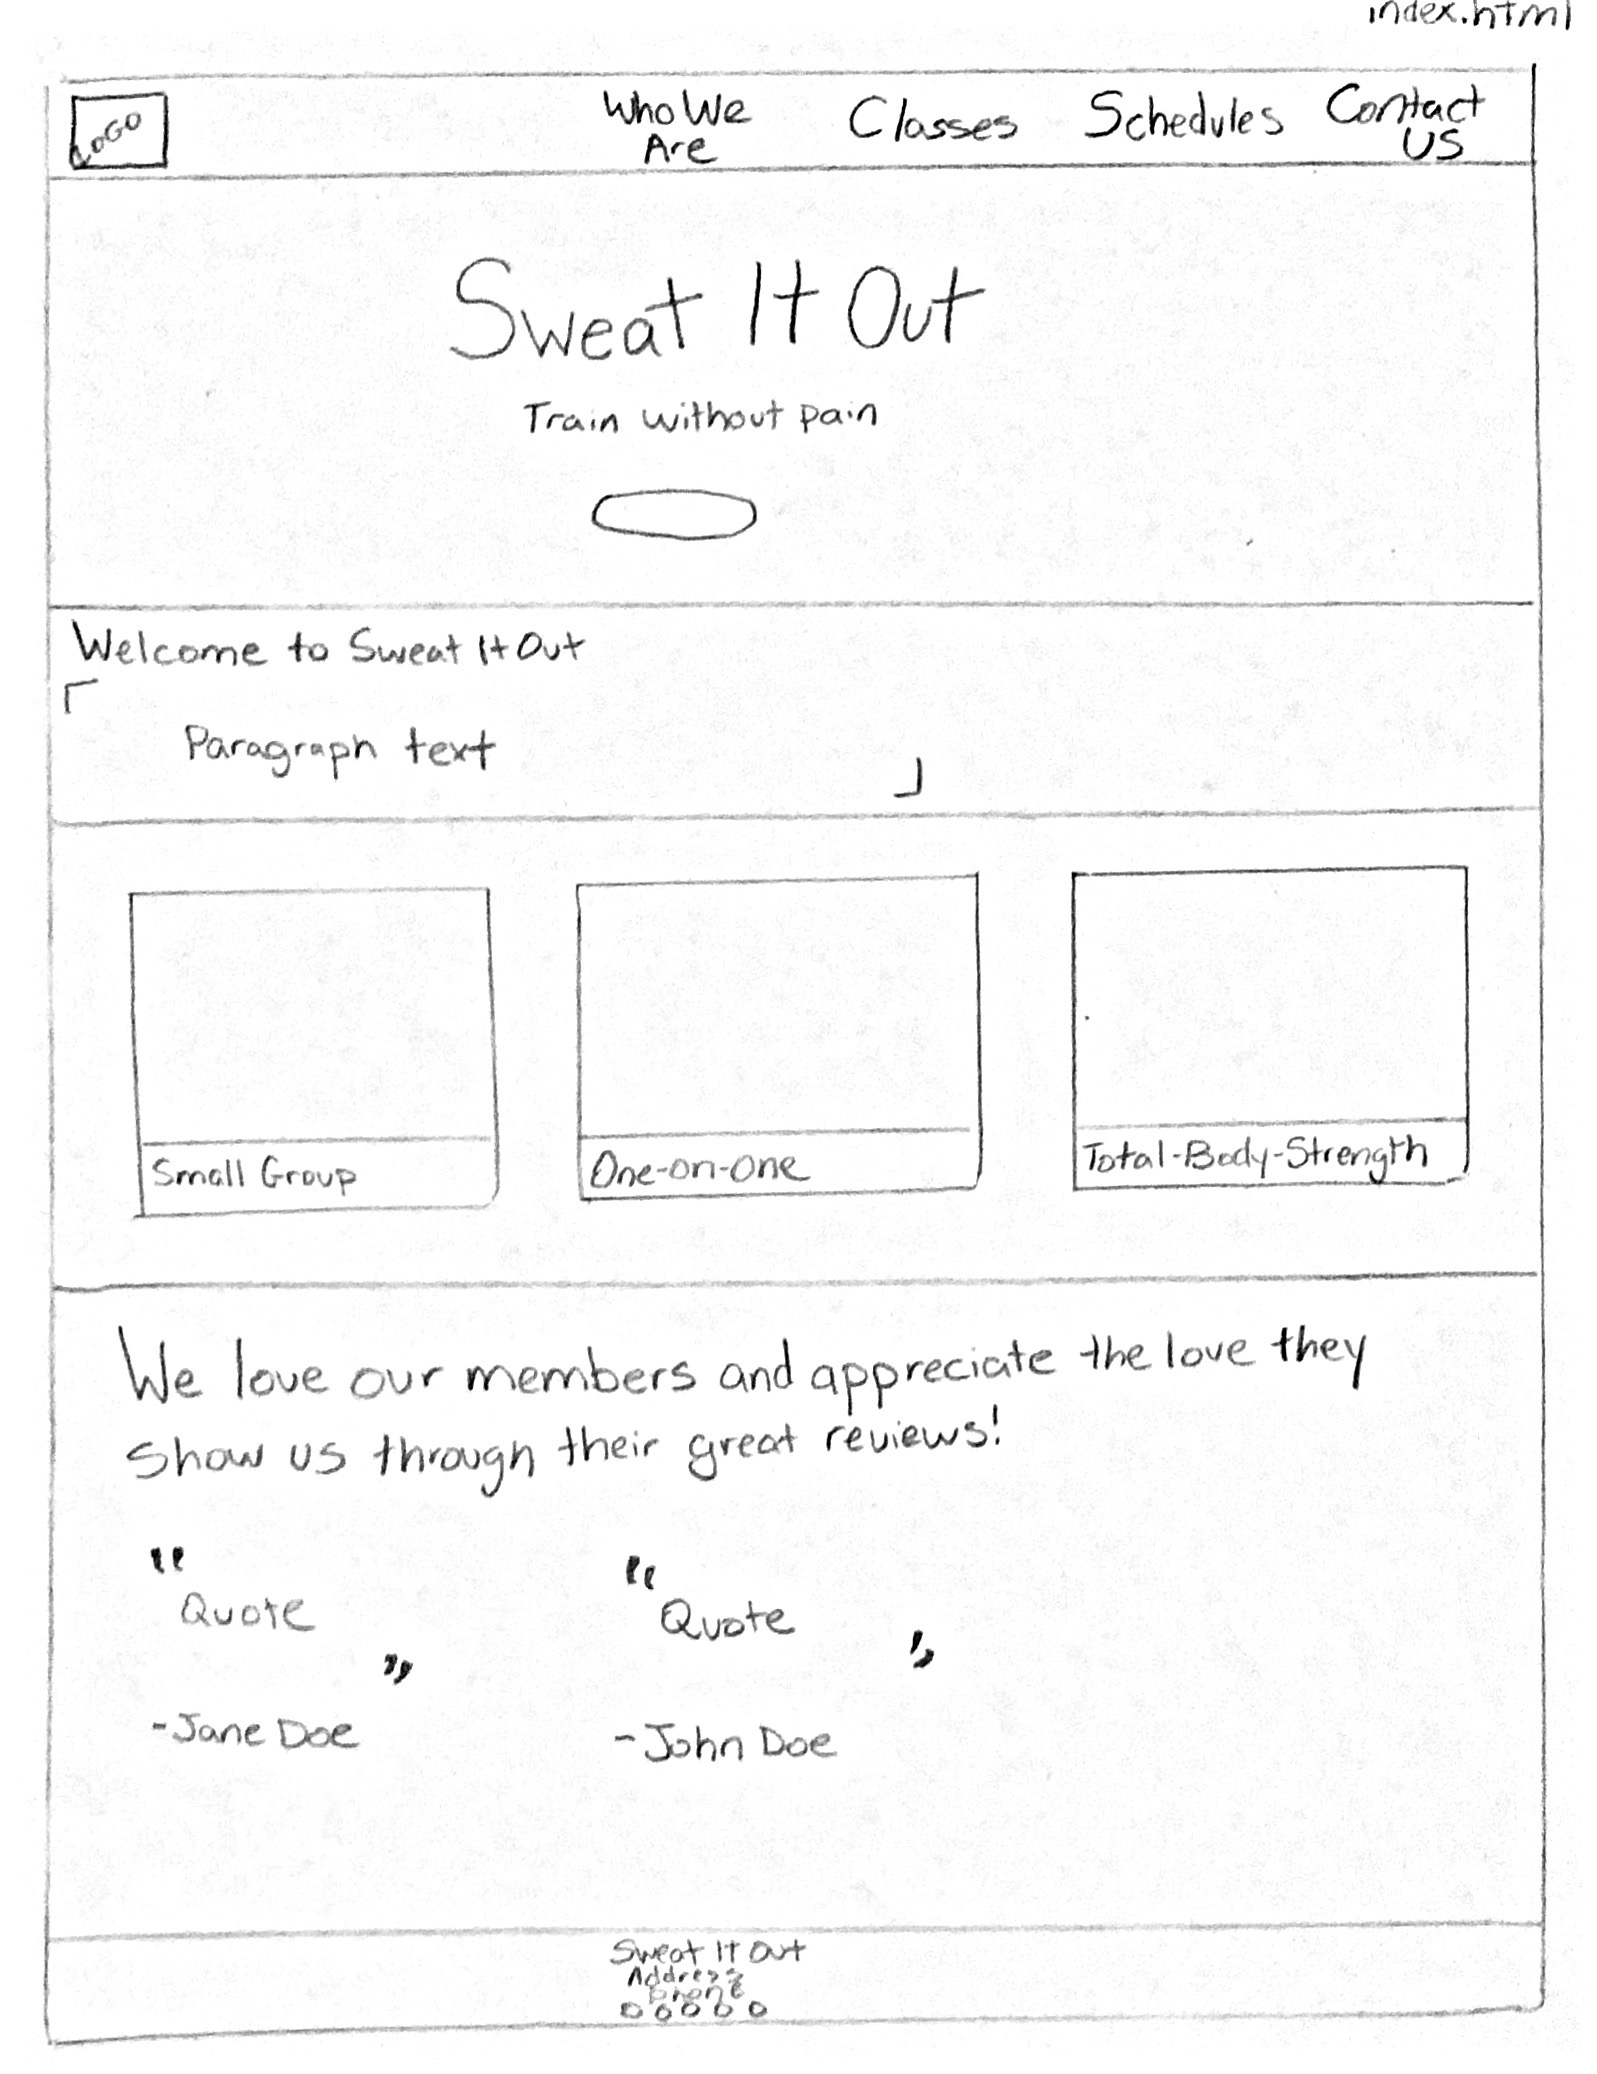 index.html
LOGO
Who We
Are
Classes
Schedules
Contact
US
Sweat It Out
Train without pain
Welcome to Sweat It Out
Paragraph text
Small Group
One-on-One
Total-Body-Strength
We love our members and appreciate the love they
show us through their great reviews!
"
Quote
"
-Jane Doe
"
Quote
"
-John Doe
Sweat It Out
Address
Phone